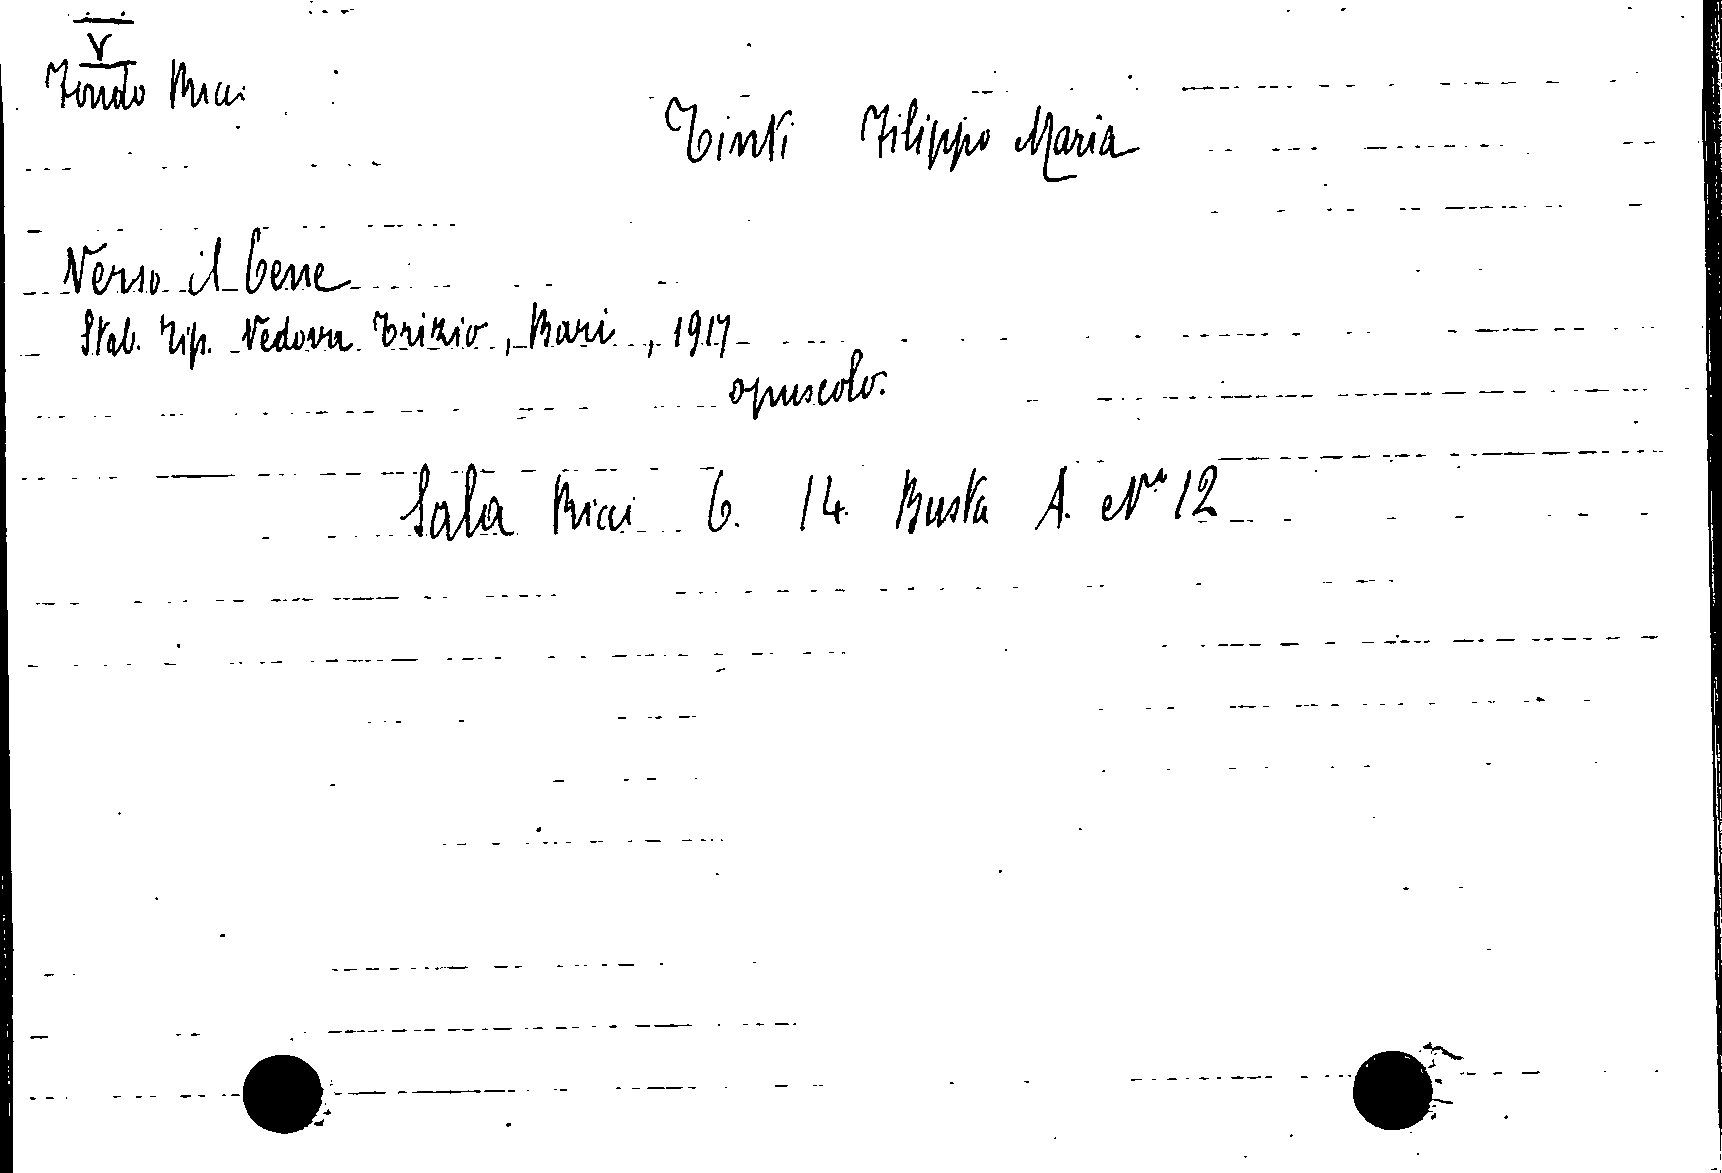 V
Fondo Ricci
Tinti Filippo Maria
Verso il bene
Stab. Tip. Vedova Trizio, Bari, 1917
opuscolo.
Sala Ricci 6. 14. Busta A. Nº 12